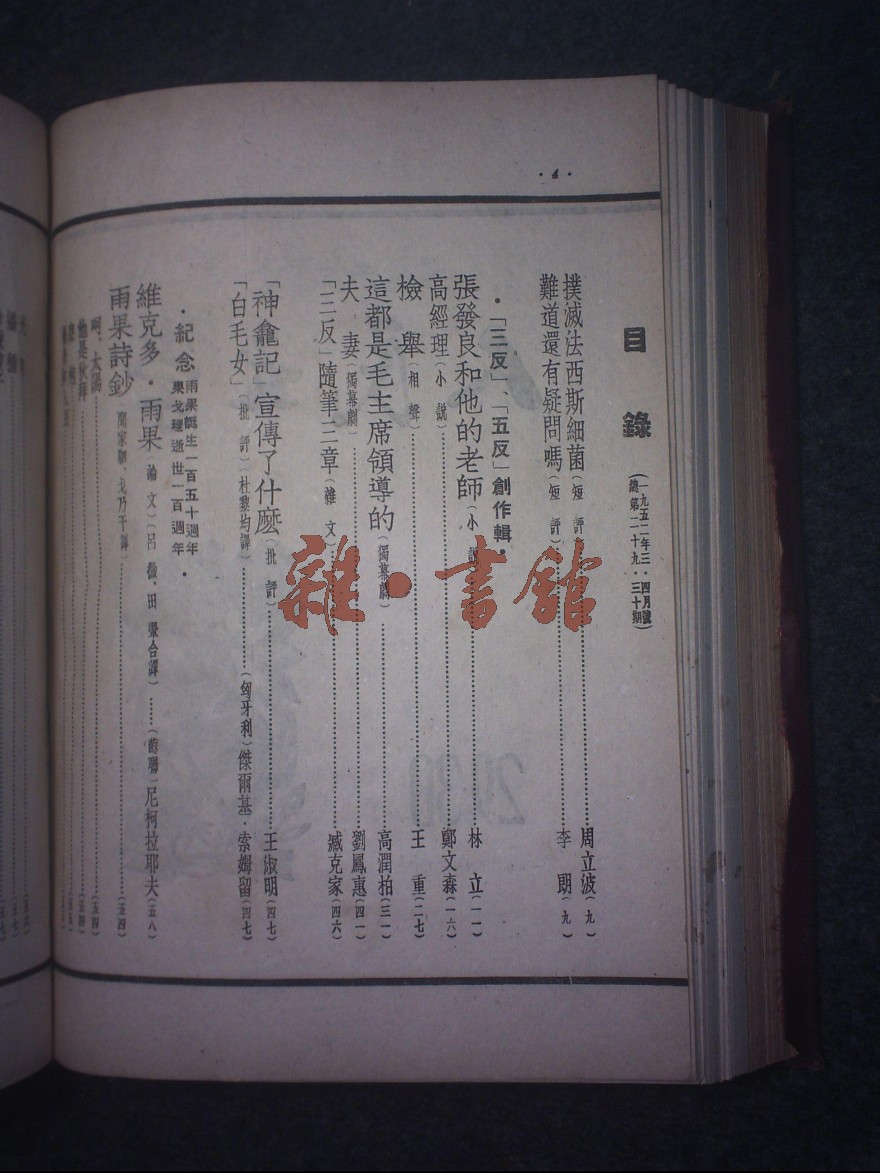 ·4·
目錄
(一九五二年三·四月號
總第二十九·三十期)
撲滅法西斯細菌(短評)……周立波(九)
難道還有疑問嗎(短評)……李朗(九)
·「三反」、「五反」創作輯·
張發良和他的老師(小說)……林立(一一)
高經理(小說)……鄭文森(一六)
檢舉(相聲)……王重(二七)
這都是毛主席領導的(獨幕劇)……高潤柏(三一)
夫妻(獨幕劇)……劉鳳惠(四一)
「三反」隨筆三章(雜文)……臧克家(四六)
「神龕記」宣傳了什麽(批評)……王淑明(四七)
「白毛女」(批評)(杜黎均譯)……(匈牙利)傑爾基·索姆留(四七)
·紀念雨果誕生一百五十週年
果戈理逝世一百週年·
維克多·雨果(論文)(呂·田合譯)……(蘇聯)尼柯拉耶夫(五八)
雨果詩鈔 聞家駟、戈乃干譯……(五四)
呵,太陽……(五四)
他是……(五四)
雜·書館
29·30